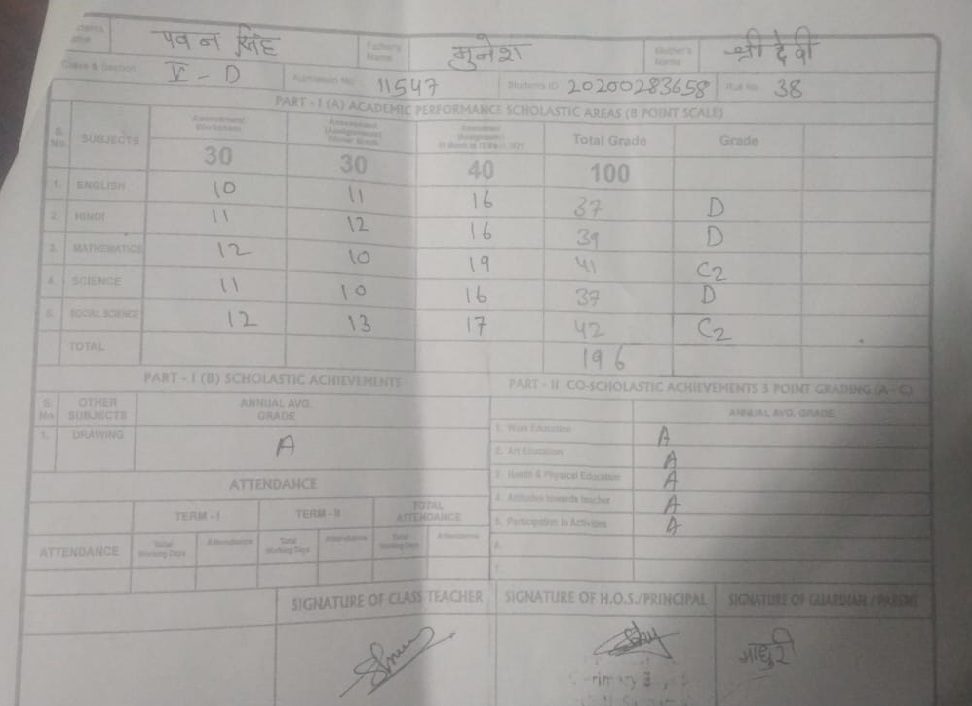 पवन सिंह Father's Name मुनेश Mother's Name श्री देवी
Class & Section V - D Admission No. 11547 Students ID 20200283658 Roll No. 38
PART - I (A) ACADEMIC PERFORMANCE SCHOLASTIC AREAS (8 POINT SCALE)
S. No. SUBJECTS Total Grade Grade
30 30 40 100
1. ENGLISH 10 11 16 37 D
2. HINDI 11 12 16 39 D
3. MATHEMATICS 12 10 19 41 C2
4. SCIENCE 11 10 16 37 D
5. SOCIAL SCIENCE 12 13 17 42 C2
TOTAL 196
PART - I (B) SCHOLASTIC ACHIEVEMENTS
PART - II CO-SCHOLASTIC ACHIEVEMENTS 3 POINT GRADING (A - C)
S. No. OTHER SUBJECTS ANNUAL AVG. GRADE
1. DRAWING A
ANNUAL AVG. GRADE
1. Work Education A
2. Art Education A
3. Health & Physical Education A
4. Attitudes towards teacher A
5. Participation in Activities A
6.
7.
ATTENDANCE
TERM - I TERM - II TOTAL ATTENDANCE
ATTENDANCE Total Working Days Attendance Total Working Days Attendance Total Working Days Attendance
SIGNATURE OF CLASS TEACHER SIGNATURE OF H.O.S./PRINCIPAL SIGNATURE OF GUARDIAN / PARENT